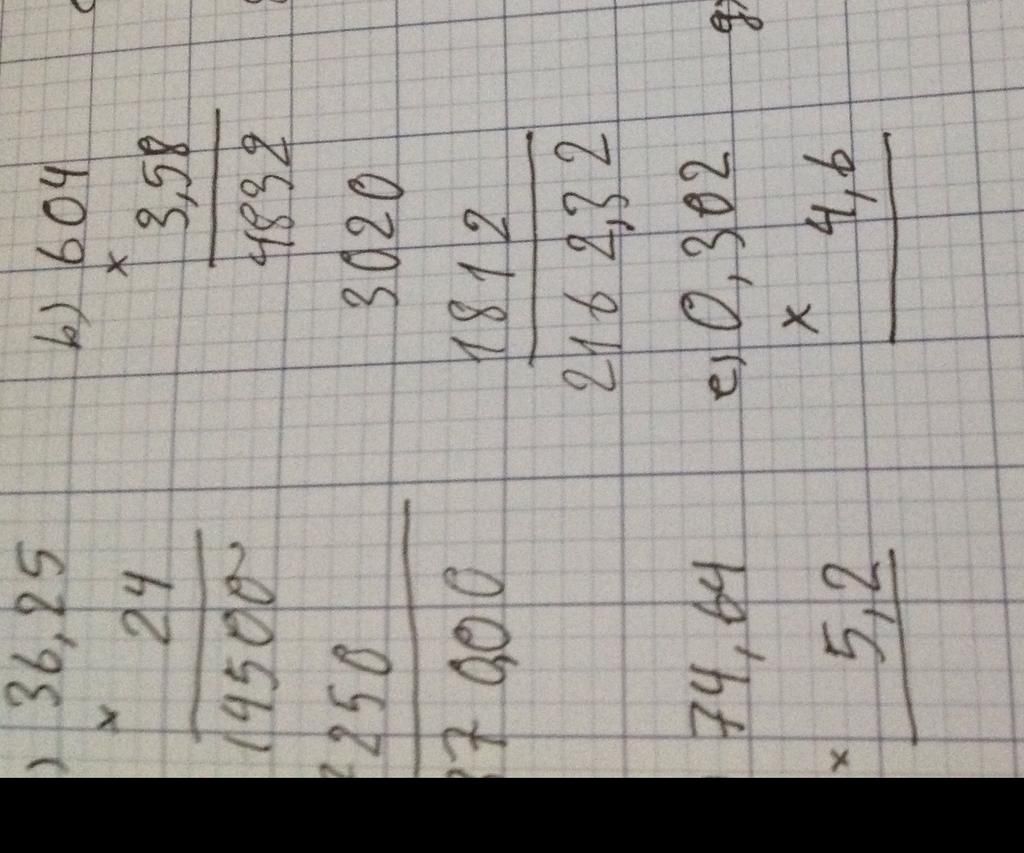 ) 36,25
× 24
14500
250
7 0,00
b) 604
× 3,58
4832
3020
1812
2162,32
74,64
× 5,2
e) 0,302
× 4,6